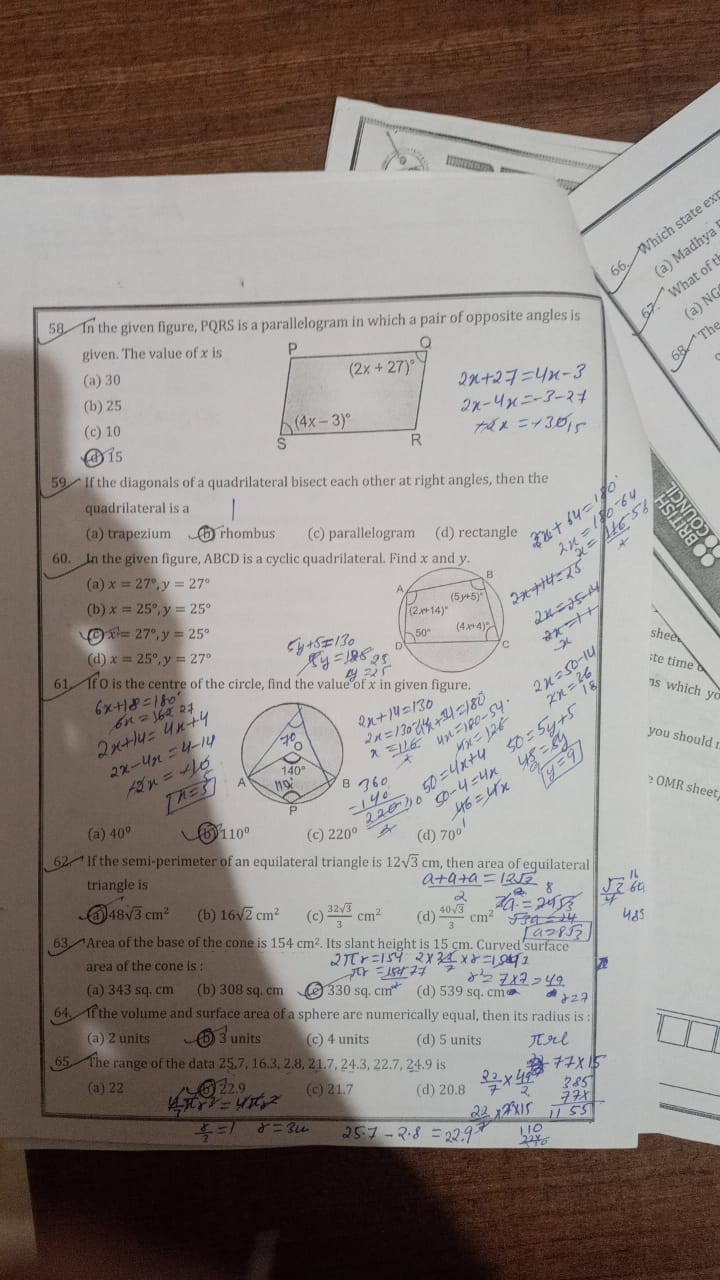 66. Which state exp
(a) Madhya
67. What of th
(a) NG
68. The
BRITISH
COUNCIL
58. In the given figure, PQRS is a parallelogram in which a pair of opposite angles is
given. The value of x is
P
Q
(a) 30
(2x + 27)°
2x+27=4x-3
(b) 25
2x-4x=-3-27
(c) 10
(4x – 3)°
S
R
(d) 15
59. If the diagonals of a quadrilateral bisect each other at right angles, then the
quadrilateral is a
(a) trapezium (b) rhombus (c) parallelogram (d) rectangle
60. In the given figure, ABCD is a cyclic quadrilateral. Find x and y.
(a) x = 27°, y = 27°
(b) x = 25°, y = 25°
(c) x = 27°, y = 25°
(d) x = 25°, y = 27°
A
B
(5y+5)°
(2x+14)°
50°
(4x+4)°
D
C
5y+5=130
y=25
2x+14=25
2x=25-14
2x=50-14
2x=26
18
61. If O is the centre of the circle, find the value of x in given figure.
6x+18=180°
6x=162 27
2x+14=4x+4
2x-4x=4-14
x=5
70
O
140°
110°
A
B
P
2x+14=130
2x=130-14
x=116
4x=180-54
4x=126
360
-140
220
50=4x+4
50-4=4x
46=4x
50=5y+5
y=9
(a) 40° (b) 110° (c) 220° (d) 70°
62. If the semi-perimeter of an equilateral triangle is 12√3 cm, then area of equilateral
triangle is
a+a+a=12√3
2
(a) 48√3 cm² (b) 16√2 cm² (c) 32√3/3 cm² (d) 40√3/3 cm²
a=8√3
63. Area of the base of the cone is 154 cm². Its slant height is 15 cm. Curved surface
area of the cone is :
2πr=154
r²=7x7=49
r=7
(a) 343 sq. cm (b) 308 sq. cm (c) 330 sq. cm (d) 539 sq. cm
64. If the volume and surface area of a sphere are numerically equal, then its radius is :
(a) 2 units (b) 3 units (c) 4 units (d) 5 units
πrl
65. The range of the data 25.7, 16.3, 2.8, 21.7, 24.3, 22.7, 24.9 is
77x15
385
77x
1155
(a) 22 (b) 22.9 (c) 21.7 (d) 20.8
r=3
25.7-2.8=22.9
110
shee
ste time
ns which yo
you should
OMR sheet,